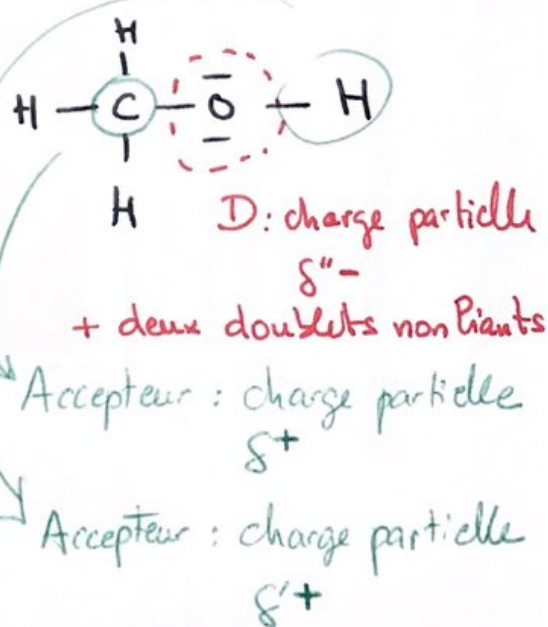 H
H — C — O — H
H
D: charge partielle
δ"-
+ deux doublets non liants
Accepteur : charge partielle
δ+
Accepteur : charge partielle
δ'+